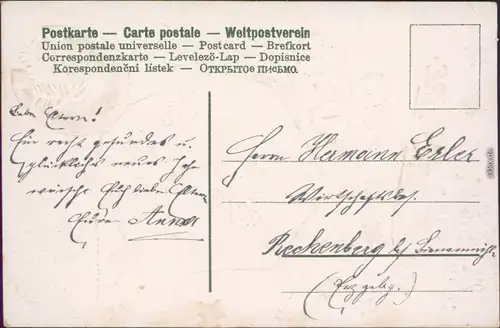 Postkarte — Carte postale — Weltpostverein
Union postale universelle — Postcard — Brefkort
Correspondenzkarte — Levelező-Lap — Dopisnice
Korespondenční lístek — ОТКРЫТОЕ ПИСЬМО.
Liebe Eltern!
Ein recht gesundes u.
glückliches neues Jahr
wünscht Euch liebe Eltern
Eure Anna
Herrn Hermann Erler
Wirtschaftsbes.
Rechenberg b/ Bienenmühle
(Erzgebg.)